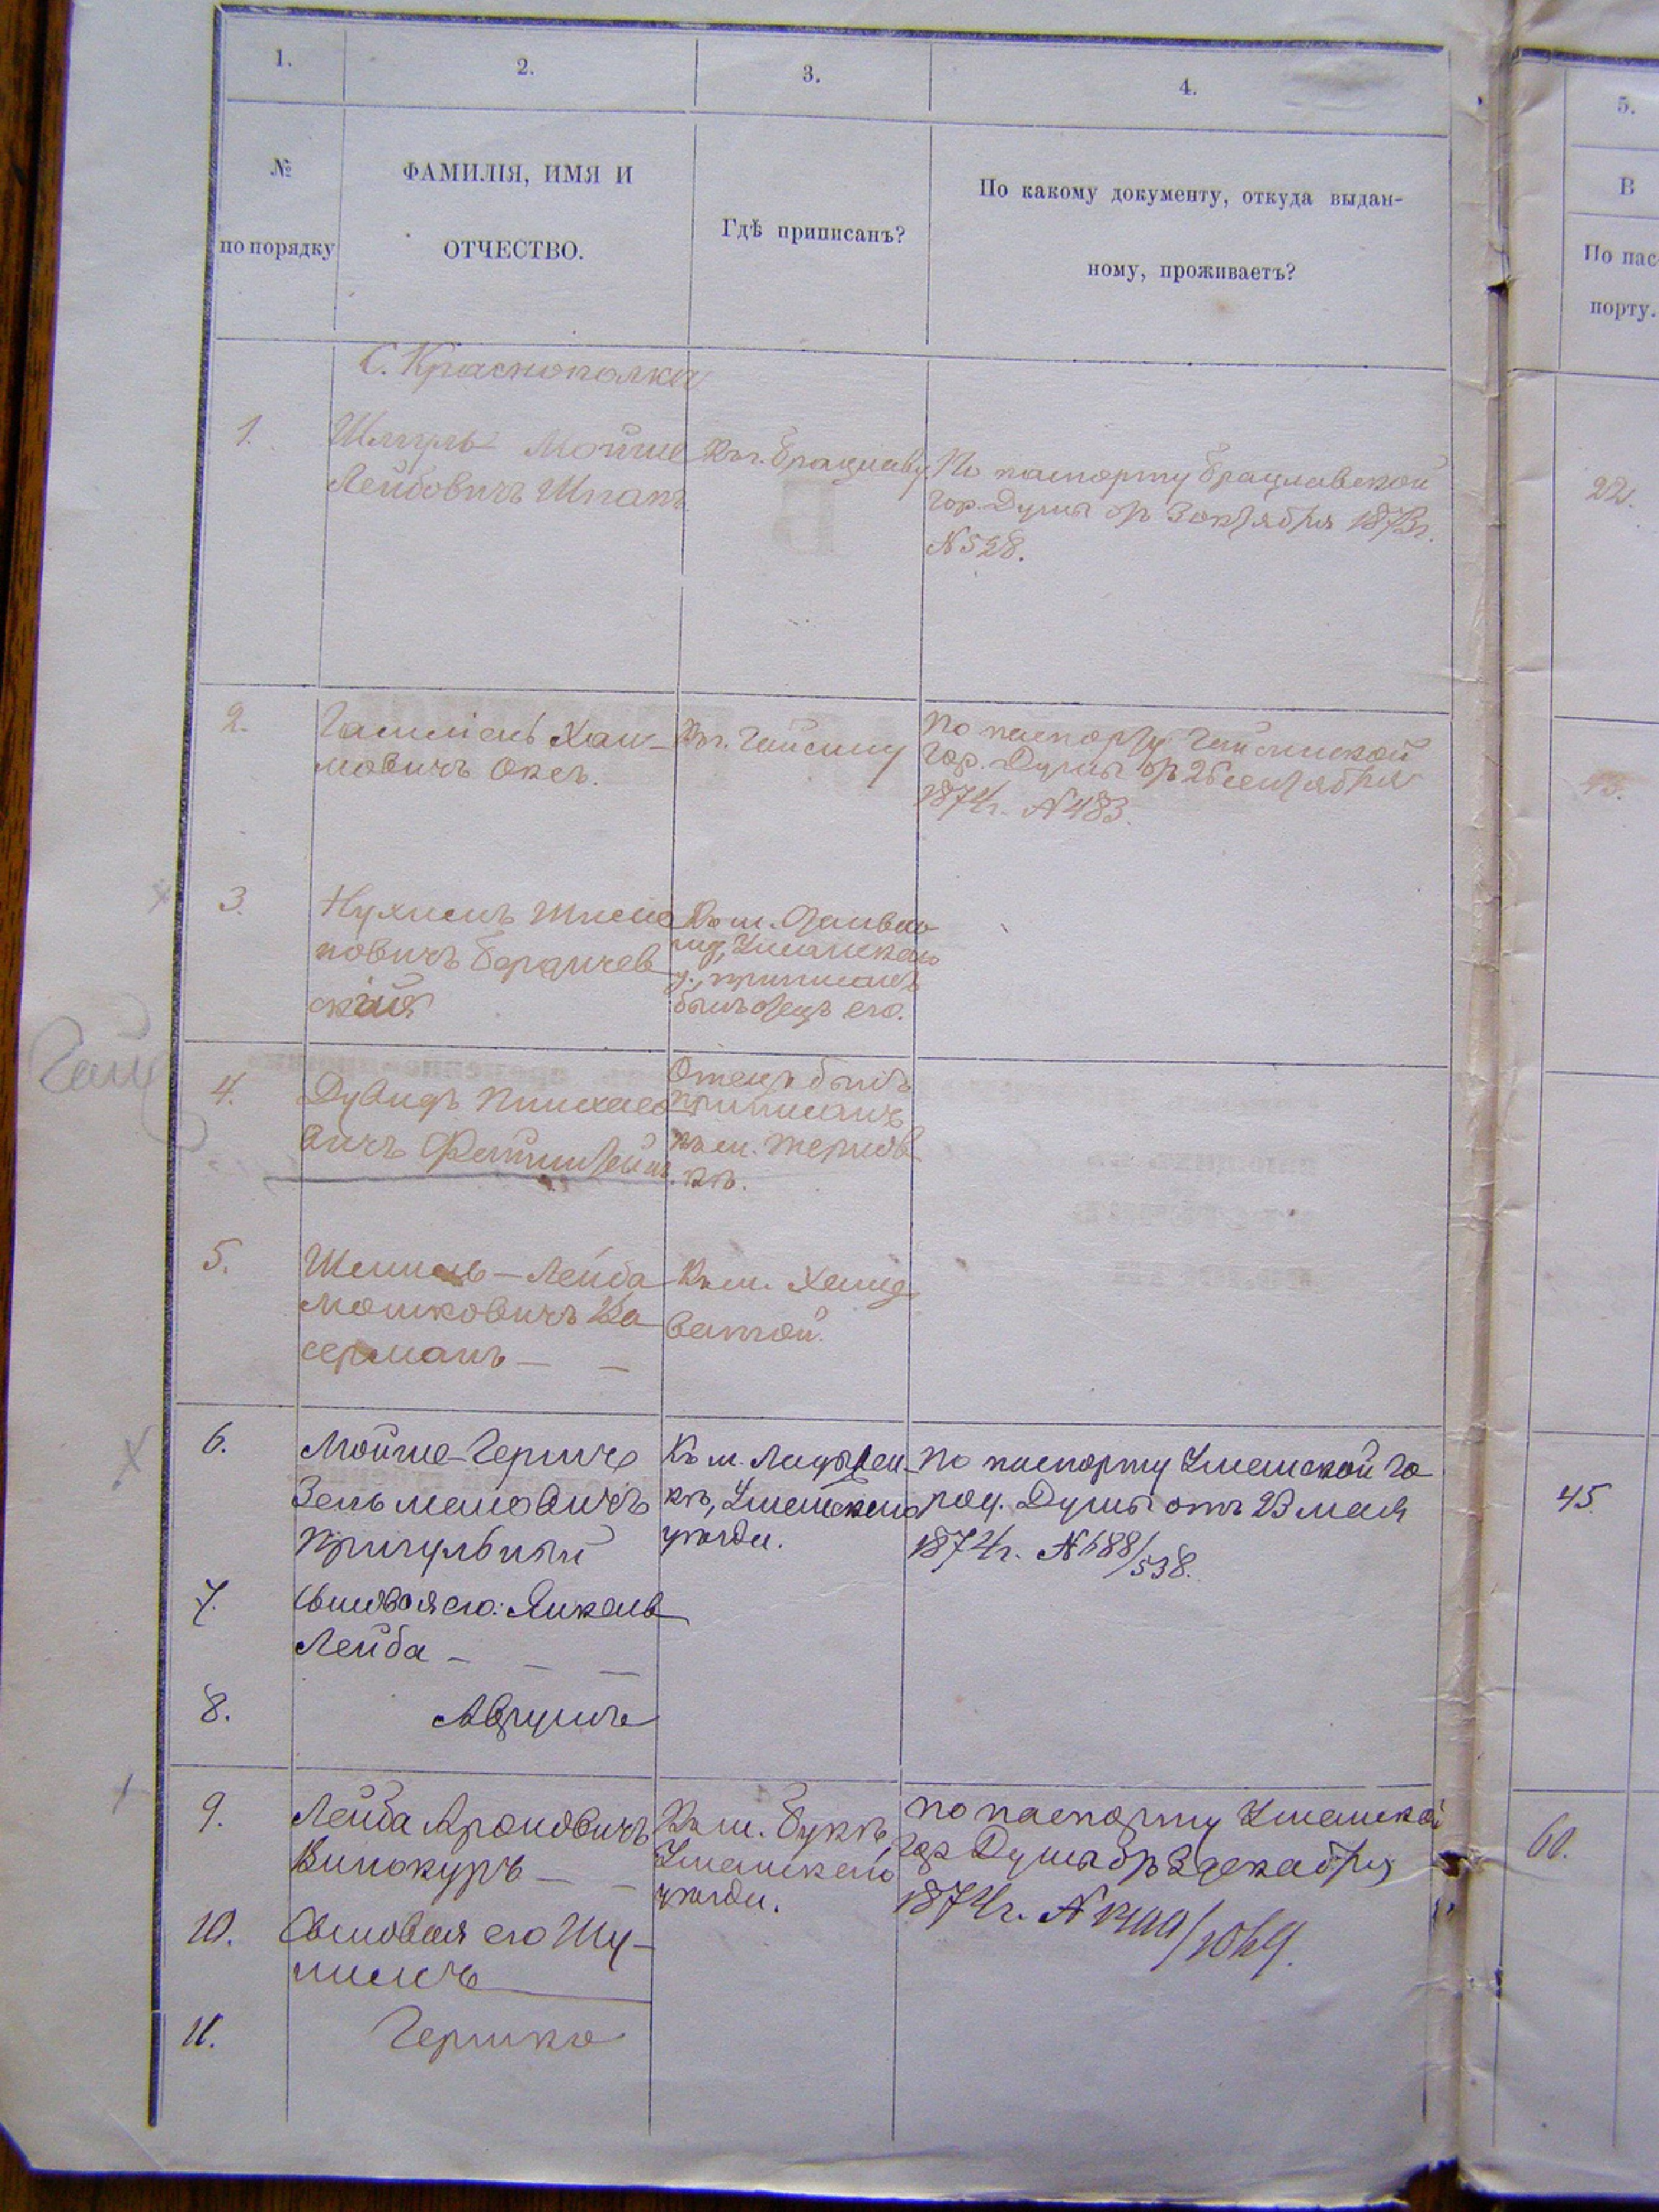 1.
2.
3.
4.
5.
№
по порядку
ФАМИЛІЯ, ИМЯ И
ОТЧЕСТВО.
Гдѣ приписанъ?
По какому документу, откуда выдан-
ному, проживаетъ?
В
По пас
порту.
С. Краснополка
1.
Шмуль Мойше
Лейбовичъ Шпакъ
Къ г. Брацлаву
По паспорту Брацлавской
гор. Думы отъ 3 октября 1873 г.
N 528.
22.
2.
Хаи-
мовичъ Оксъ.
Къ г. Гайсину
По паспорту Гайсинской
гор. Думы отъ 26 сентября
1874 г. N 483.
43.
3.
Нухимъ
повичъ Бердичев
скій
Къ м.
Уманскаго
у., приписанъ
былъ отецъ его.
Гайс
4.
Дувидъ Пинхасо
вичъ
Отецъ былъ
приписанъ
къ м. Тернов
кѣ.
5.
Шмиль - Лейба
Мошковичъ Ва
серманъ - -
Къ м. Хащ
ватой.
6.
Мойше-Гершъ
Зельмановичъ
Пригульный
Къ м. Ладыжен-
кѣ, Уманскаго
уѣзда.
По паспорту Уманской Го
род. Думы отъ 23 мая
1874 г. N 688/538.
45.
7.
Сыновья его: Янкель
Лейба - - -
8.
Аврумъ
9.
Лейба Ароновичъ
Винокуръ - -
Къ м. Букѣ,
Уманскаго
уѣзда.
По паспорту Уманской
гор Думы отъ 2 декабря
1874 г. N
60.
10.
Сыновья его Шу-
лимъ
11.
Гершко